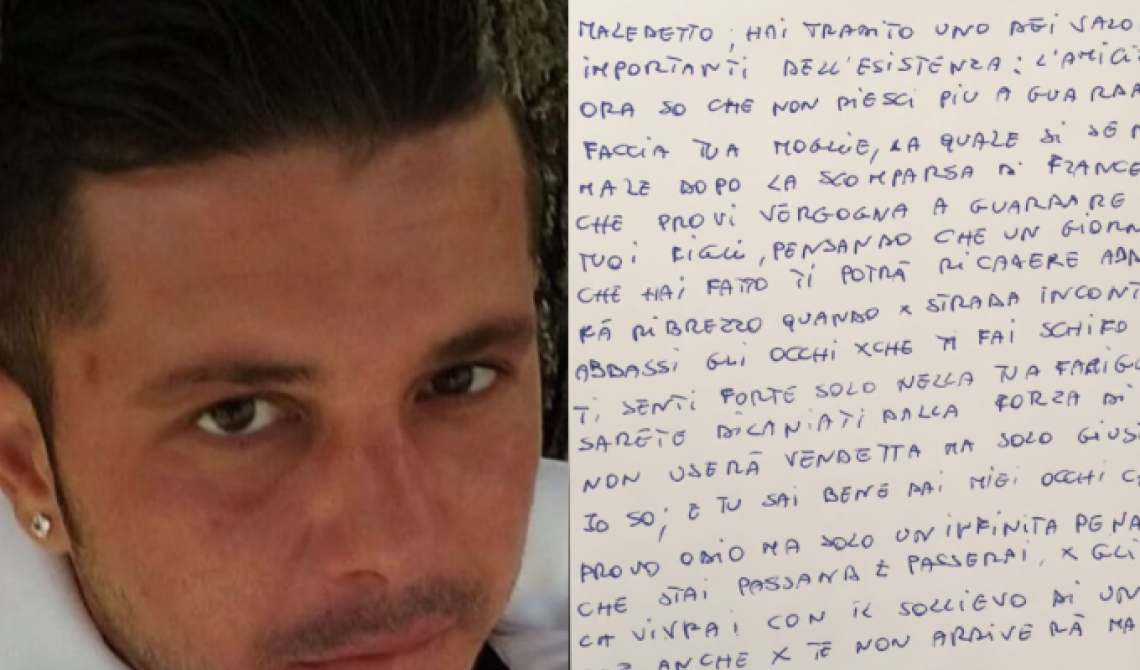 MALEDETTO, HAI TRADITO UNO DEI VALO
IMPORTANTI DELL'ESISTENZA: L'AMICI
ORA SO CHE NON RIESCI PIU A GUARDA
FACCIA TUA MOGLIE, LA QUALE SI SEN
MALE DOPO LA SCOMPARSA DI FRANCE
CHE PROVI VERGOGNA A GUARDARE
TUOI FIGLI, PENSANDO CHE UN GIORN
CHE HAI FATTO TI POTRÀ RICADERE ADD
FÀ RIBREZZO QUANDO X STRADA INCONT
ABBASSI GLI OCCHI XCHE TI FAI SCHIFO
TI SENTI FORTE SOLO NELLA TUA FAMIGL
SARETE DILANIATI DALLA FORZA DI
NON USERÀ VENDETTA MA SOLO GIUS
IO SO; E TU SAI BENE DAI MIEI OCCHI C
PROVO ODIO MA SOLO UN INFINITA PENA
CHE STAI PASSANDO E PASSERAI, X GLI
CA VIVRAI CON IL SOLLIEVO DI UN
ANCHE X TE NON ARRIVERÀ MA